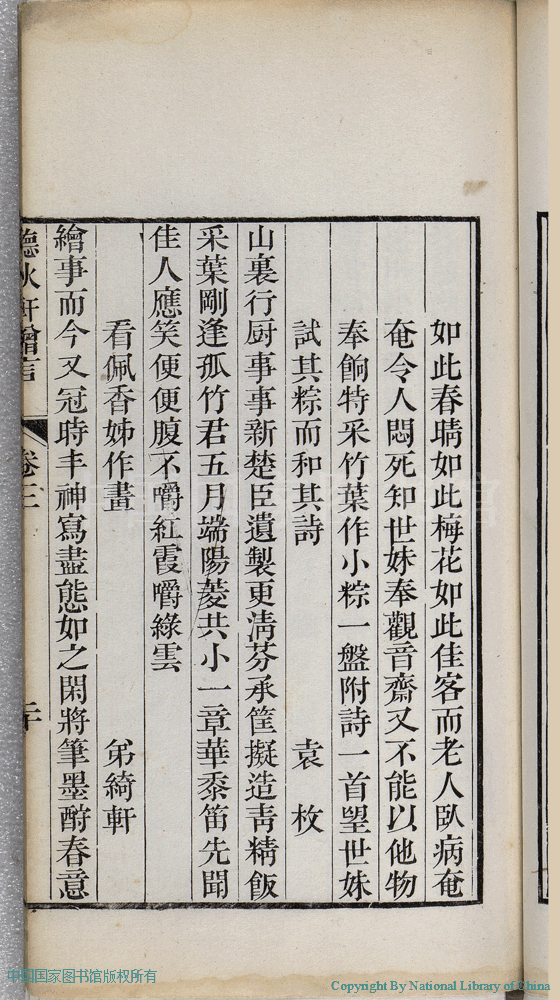 如此春晴如此梅花如此佳客而老人臥病奄
奄令人悶死知世妹奉觀音齋又不能以他物
奉餉特采竹葉作小粽一盤附詩一首望世妹
試其粽而和其詩
袁枚
山裏行厨事事新楚臣遺製更淸芬承筐擬造青精飯
采葉剛逢孤竹君五月端陽菱共小一章華黍笛先聞
佳人應笑便便腹不嚼紅霞嚼綠雲
看佩香姊作畫
弟綺軒
繪事而今又冠時丰神寫盡態如之閑將筆墨酧春意
軒贈言
卷三
中国国家图书馆版权所有
Copyright By National Library of China